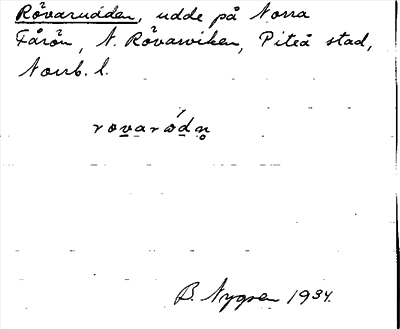 Rövarudden, udde på Norra
Fårön, N. Rövarviken, Piteå stad,
Norrb. l.
rovaródn̥
B. Nygren 1934.